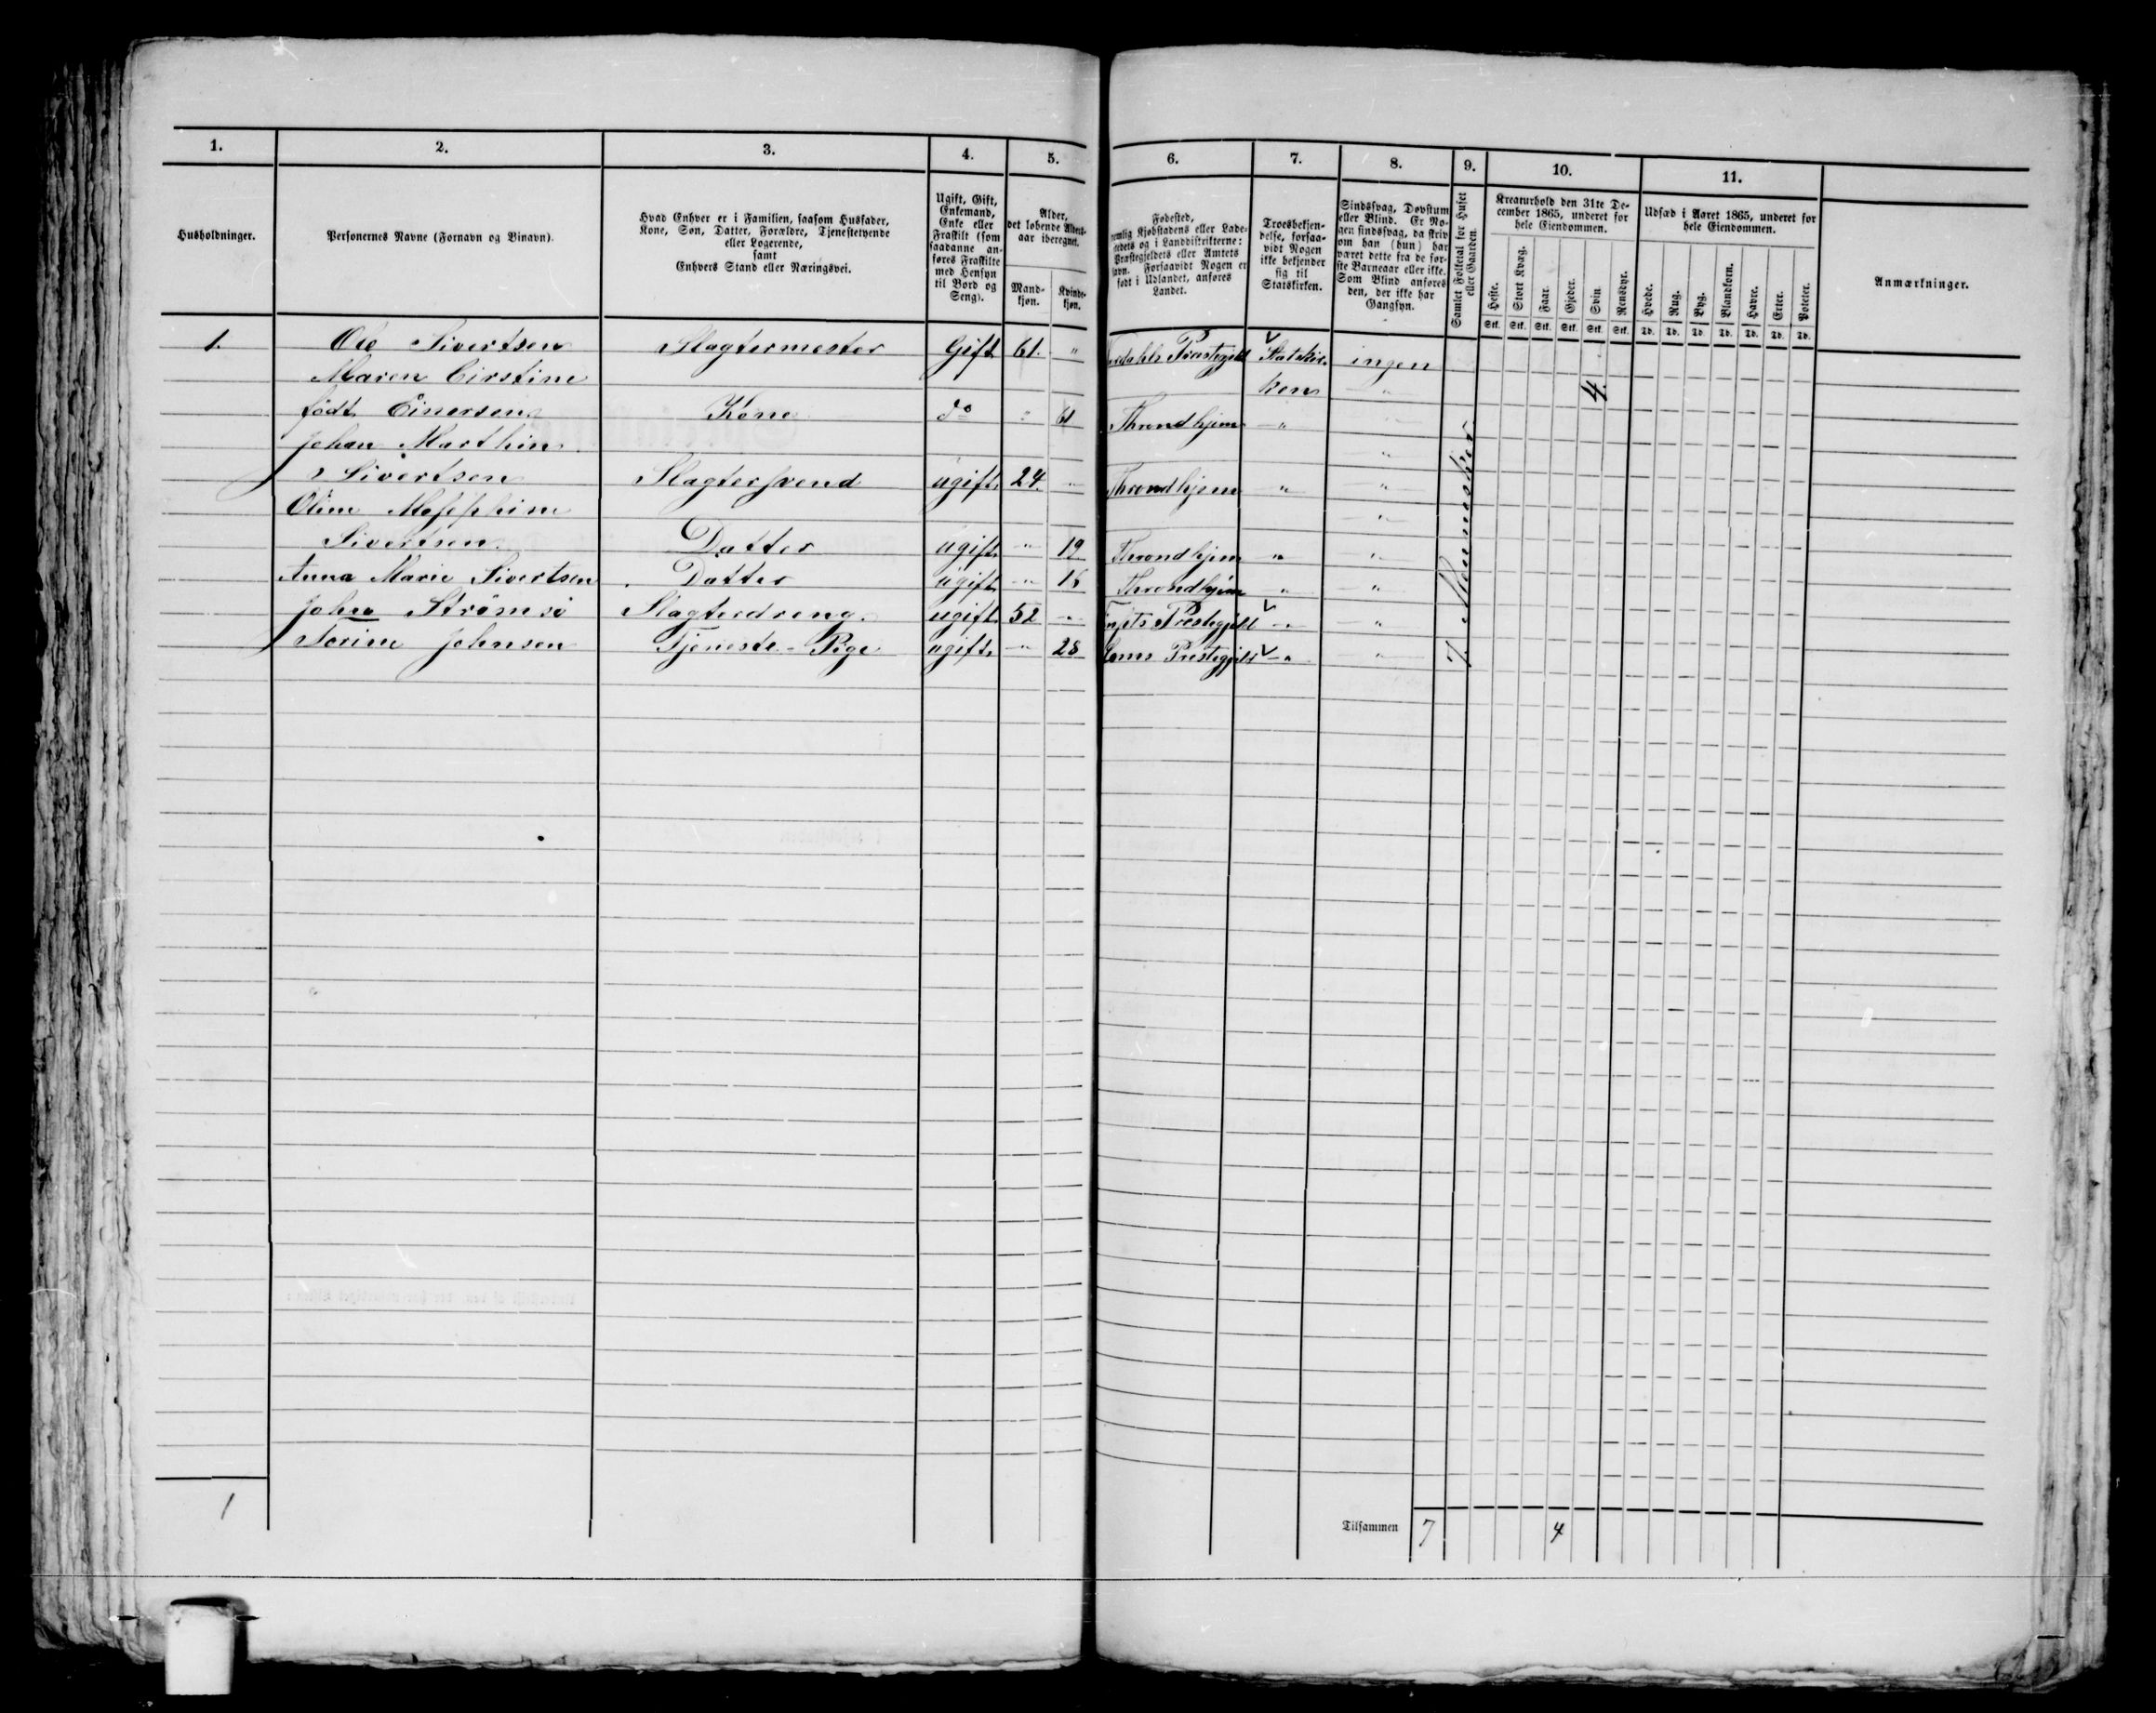 1. 2. 3. 4. 5. 6. 7. 8. 9. 10. 11.
Husholdninger.
Personernes Navne (Fornavn og Binavn).
Hvad Enhver er i Familien, saasom Husfader,
Kone, Søn, Datter, Forældre, Tjenestetyende
eller Logerende,
samt
Enhvers Stand eller Næringsvei.
Ugift, Gift,
Enkemand,
Enke eller
Fraskilt (som
saadanne an-
føres Fraskilte
med Hensyn
til Bord og
Seng).
Alder,
det løbende Alders-
aar iberegnet.
Mand-
kjøn.
Kvinde-
kjøn.
Fødested,
nemlig Kjøbstadens eller Lade-
stedets og i Landdistrikterne:
Præstegjeldets eller Amtets
Navn. Forsaavidt Nogen er
født i Udlandet, anføres
Landet.
Troesbekjen-
delse, forsaa-
vidt Nogen
ikke bekjender
sig til
Statskirken.
Sindssvag, Døvstum
eller Blind. Er No-
gen sindssvag, da skriv
om han (hun) har
været dette fra de før-
ste Barneaar eller ikke.
Som Blind anføres
den, der ikke har
Gangsyn.
Samlet Folketal for Huset
eller Gaarden.
Kreaturhold den 31te De-
cember 1865, underet for
hele Eiendommen.
Heste. Stort Kvæg. Faar. Gjeder. Svin. Rensdyr.
Stk. Stk. Stk. Stk. Stk. Stk.
Udsæd i Aaret 1865, underet for
hele Eiendommen.
Hvede. Rug. Byg. Blandkorn. Havre. Erter. Poteter.
Td. Td. Td. Td. Td. Td. Td.
Anmærkninger.
1. Ole Sivertsen Slagtermester Gift 61. " Præstegjeld Statskir- ingen
Maren Cirstine ken " 4.
født Einersen Kone do " 61 Throndhjem "
Johan Marthin "
Sivertsen Slagtersvend ugift 24. " Throndhjem " "
Oline "
Sivertsen Datter ugift " 19 Throndhjem " "
Anna Marie Sivertsen Datter ugift " 16 Throndhjem " "
John Strømsö Slagterdreng. ugift 52 " Prestegjeld " "
Torine Johnsen Tjeneste-Pige ugift " 28 Prestegjeld " "
7 Mennesker
1 Tilsammen 7 4